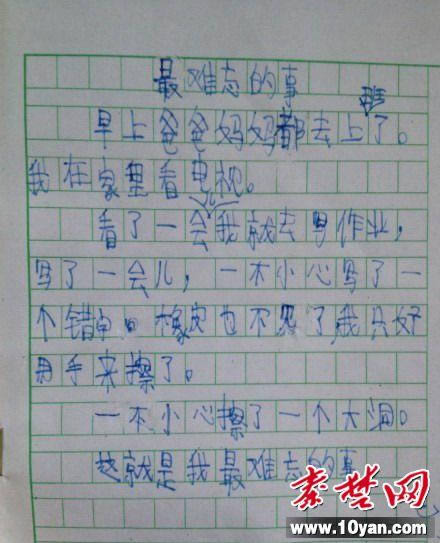 最难忘的事
早上爸爸妈妈都去上班了。
我在家里看电视。
看了一会儿我就去写作业，
写了一会儿，一不小心写了一
个错字。橡皮也不见了，我只好
用手来擦了。
一不小心擦了一个大洞。
这就是我最难忘的事
秦楚网
www.10yan.com